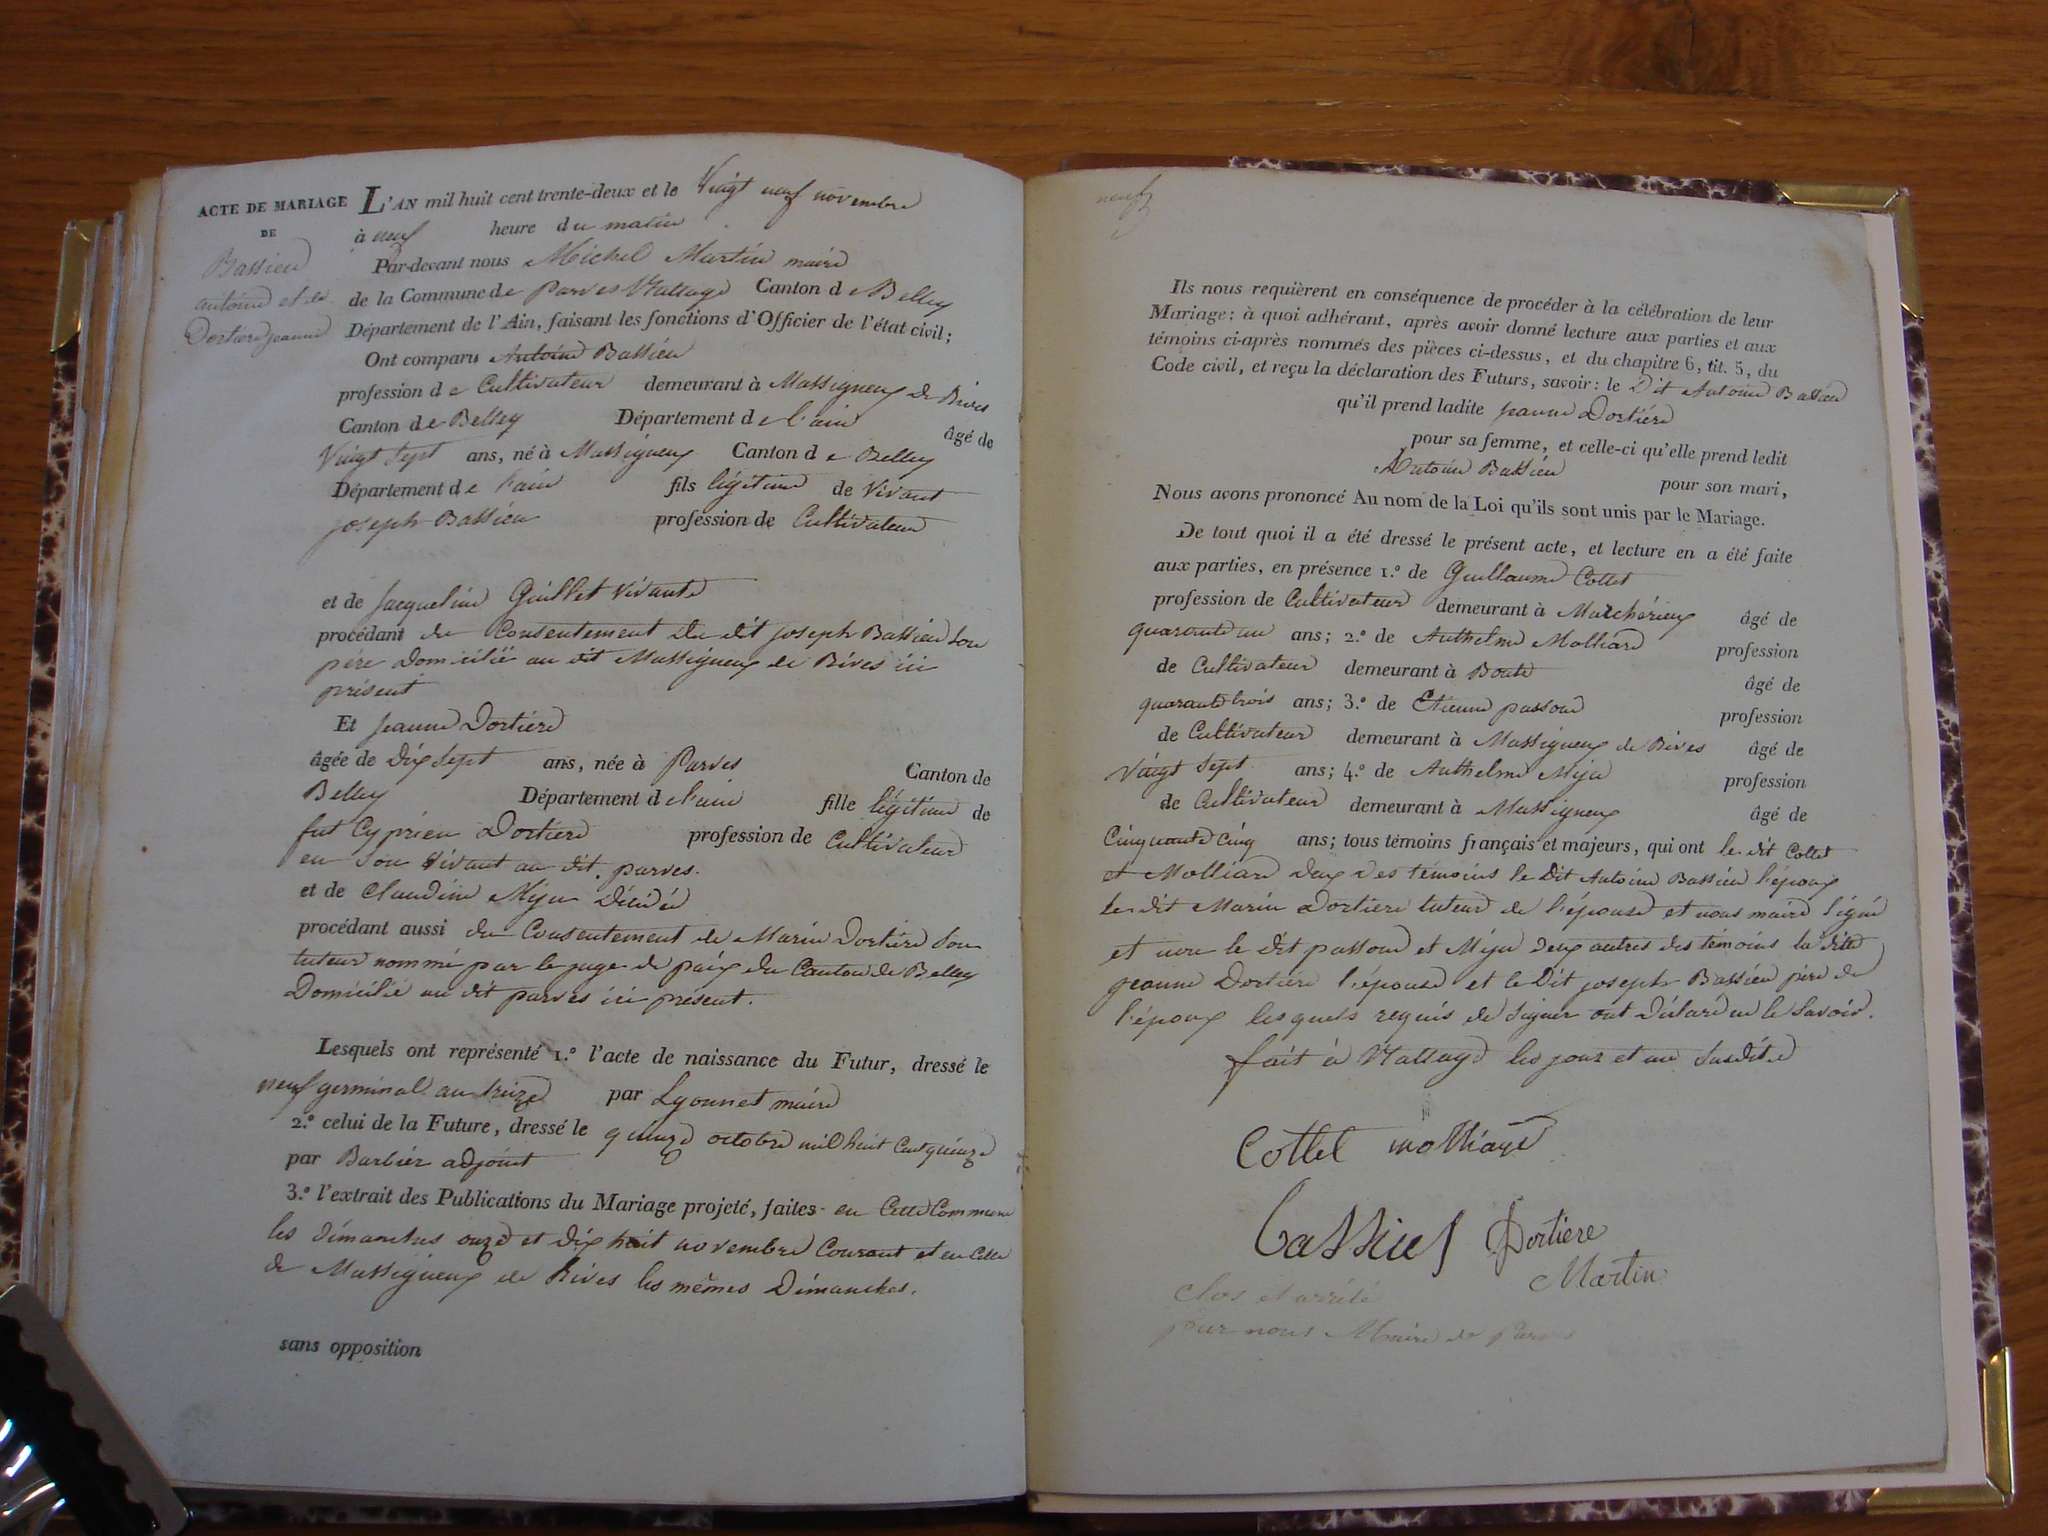 ACTE DE MARIAGE
DE
Bassieu
antoine et de
Dortiere jeanne
L'AN mil huit cent trente-deux et le Vingt neuf novembre
à neuf heure du matin
Par-devant nous Michel Martin maire
de la Commune de parves Nattage Canton de Belley
Département de l'Ain, faisant les fonctions d'Officier de l'état civil;
Ont comparu Antoine Bassieu
profession de Cultivateur demeurant à Massigneux de Rives
Canton de Belley Département de l'ain âgé de
Vingt Sept ans, né à Massigneux Canton de Belley
Département de l'ain fils légitime de vivant
joseph Bassieu profession de Cultivateur
et de Jacqueline Guillet vivante
procédant du Consentement du dit joseph Bassieu Son
père Domicilié au dit Massigneux de Rives ici
présent
Et Jeanne Dortiere
âgée de Dix Sept ans, née à Parves Canton de
Belley Département de l'ain fille légitime de
fut Cyprien Dortiere profession de Cultivateur
en Son Vivant au dit parves.
et de Claudine Myu Décédée
procédant aussi du Consentement de Marin Dortiere Son
tuteur nommé par le juge de paix du Canton de Belley
Domicilié au dit parves ici présent.
Lesquels ont représenté 1.º l'acte de naissance du Futur, dressé le
neuf germinal an treize par Lyonnet maire
2.º celui de la Future, dressé le quinze octobre mil huit Cent quinze
par Barbier adjoint
3.º l'extrait des Publications du Mariage projeté, faites en Cette Commune
les dimanches onze et dix huit novembre Courant et en Celle
de Massigneux de Rives les mêmes Dimanches.
sans opposition
neuf
Ils nous requièrent en conséquence de procéder à la célébration de leur
Mariage: à quoi adhérant, après avoir donné lecture aux parties et aux
témoins ci-après nommés des pièces ci-dessus, et du chapitre 6, tit. 5, du
Code civil, et reçu la déclaration des Futurs, savoir: le Dit Antoine Bassieu
qu'il prend ladite jeanne Dortiére
pour sa femme, et celle-ci qu'elle prend ledit
Antoine Bassieu pour son mari,
Nous avons prononcé Au nom de la Loi qu'ils sont unis par le Mariage.
De tout quoi il a été dressé le présent acte, et lecture en a été faite
aux parties, en présence 1.º de Guillaume Collet
profession de Cultivateur demeurant à Malchérieux âgé de
quarante un ans; 2.º de Anthelme Molliard profession
de Cultivateur demeurant à Boute âgé de
quarante trois ans; 3.º de Etienne passou profession
de Cultivateur demeurant à Massigneux de Rives âgé de
Vingt Sept ans; 4.º de Anthelme Myu profession
de Cultivateur demeurant à Massigneux âgé de
Cinquante Cinq ans; tous témoins français et majeurs, qui ont le dit Collet
et Molliard deux des témoins le Dit Antoine Bassieu l'époux
le dit Marin Dortiere tuteur de l'épouse et nous maire Signé
et non le dit passou et Myu deux autres des témoins la ditte
jeanne Dortiere l'épouse et le Dit joseph Bassieu père de
l'époux lesquels requis de Signer ont Déclaré ne le Savoir.
fait à Nattage les jour et an Susdite
Collet molliard
bassieu Dortiere
Martin
Clos et arrêté
par nous Maire de Parves